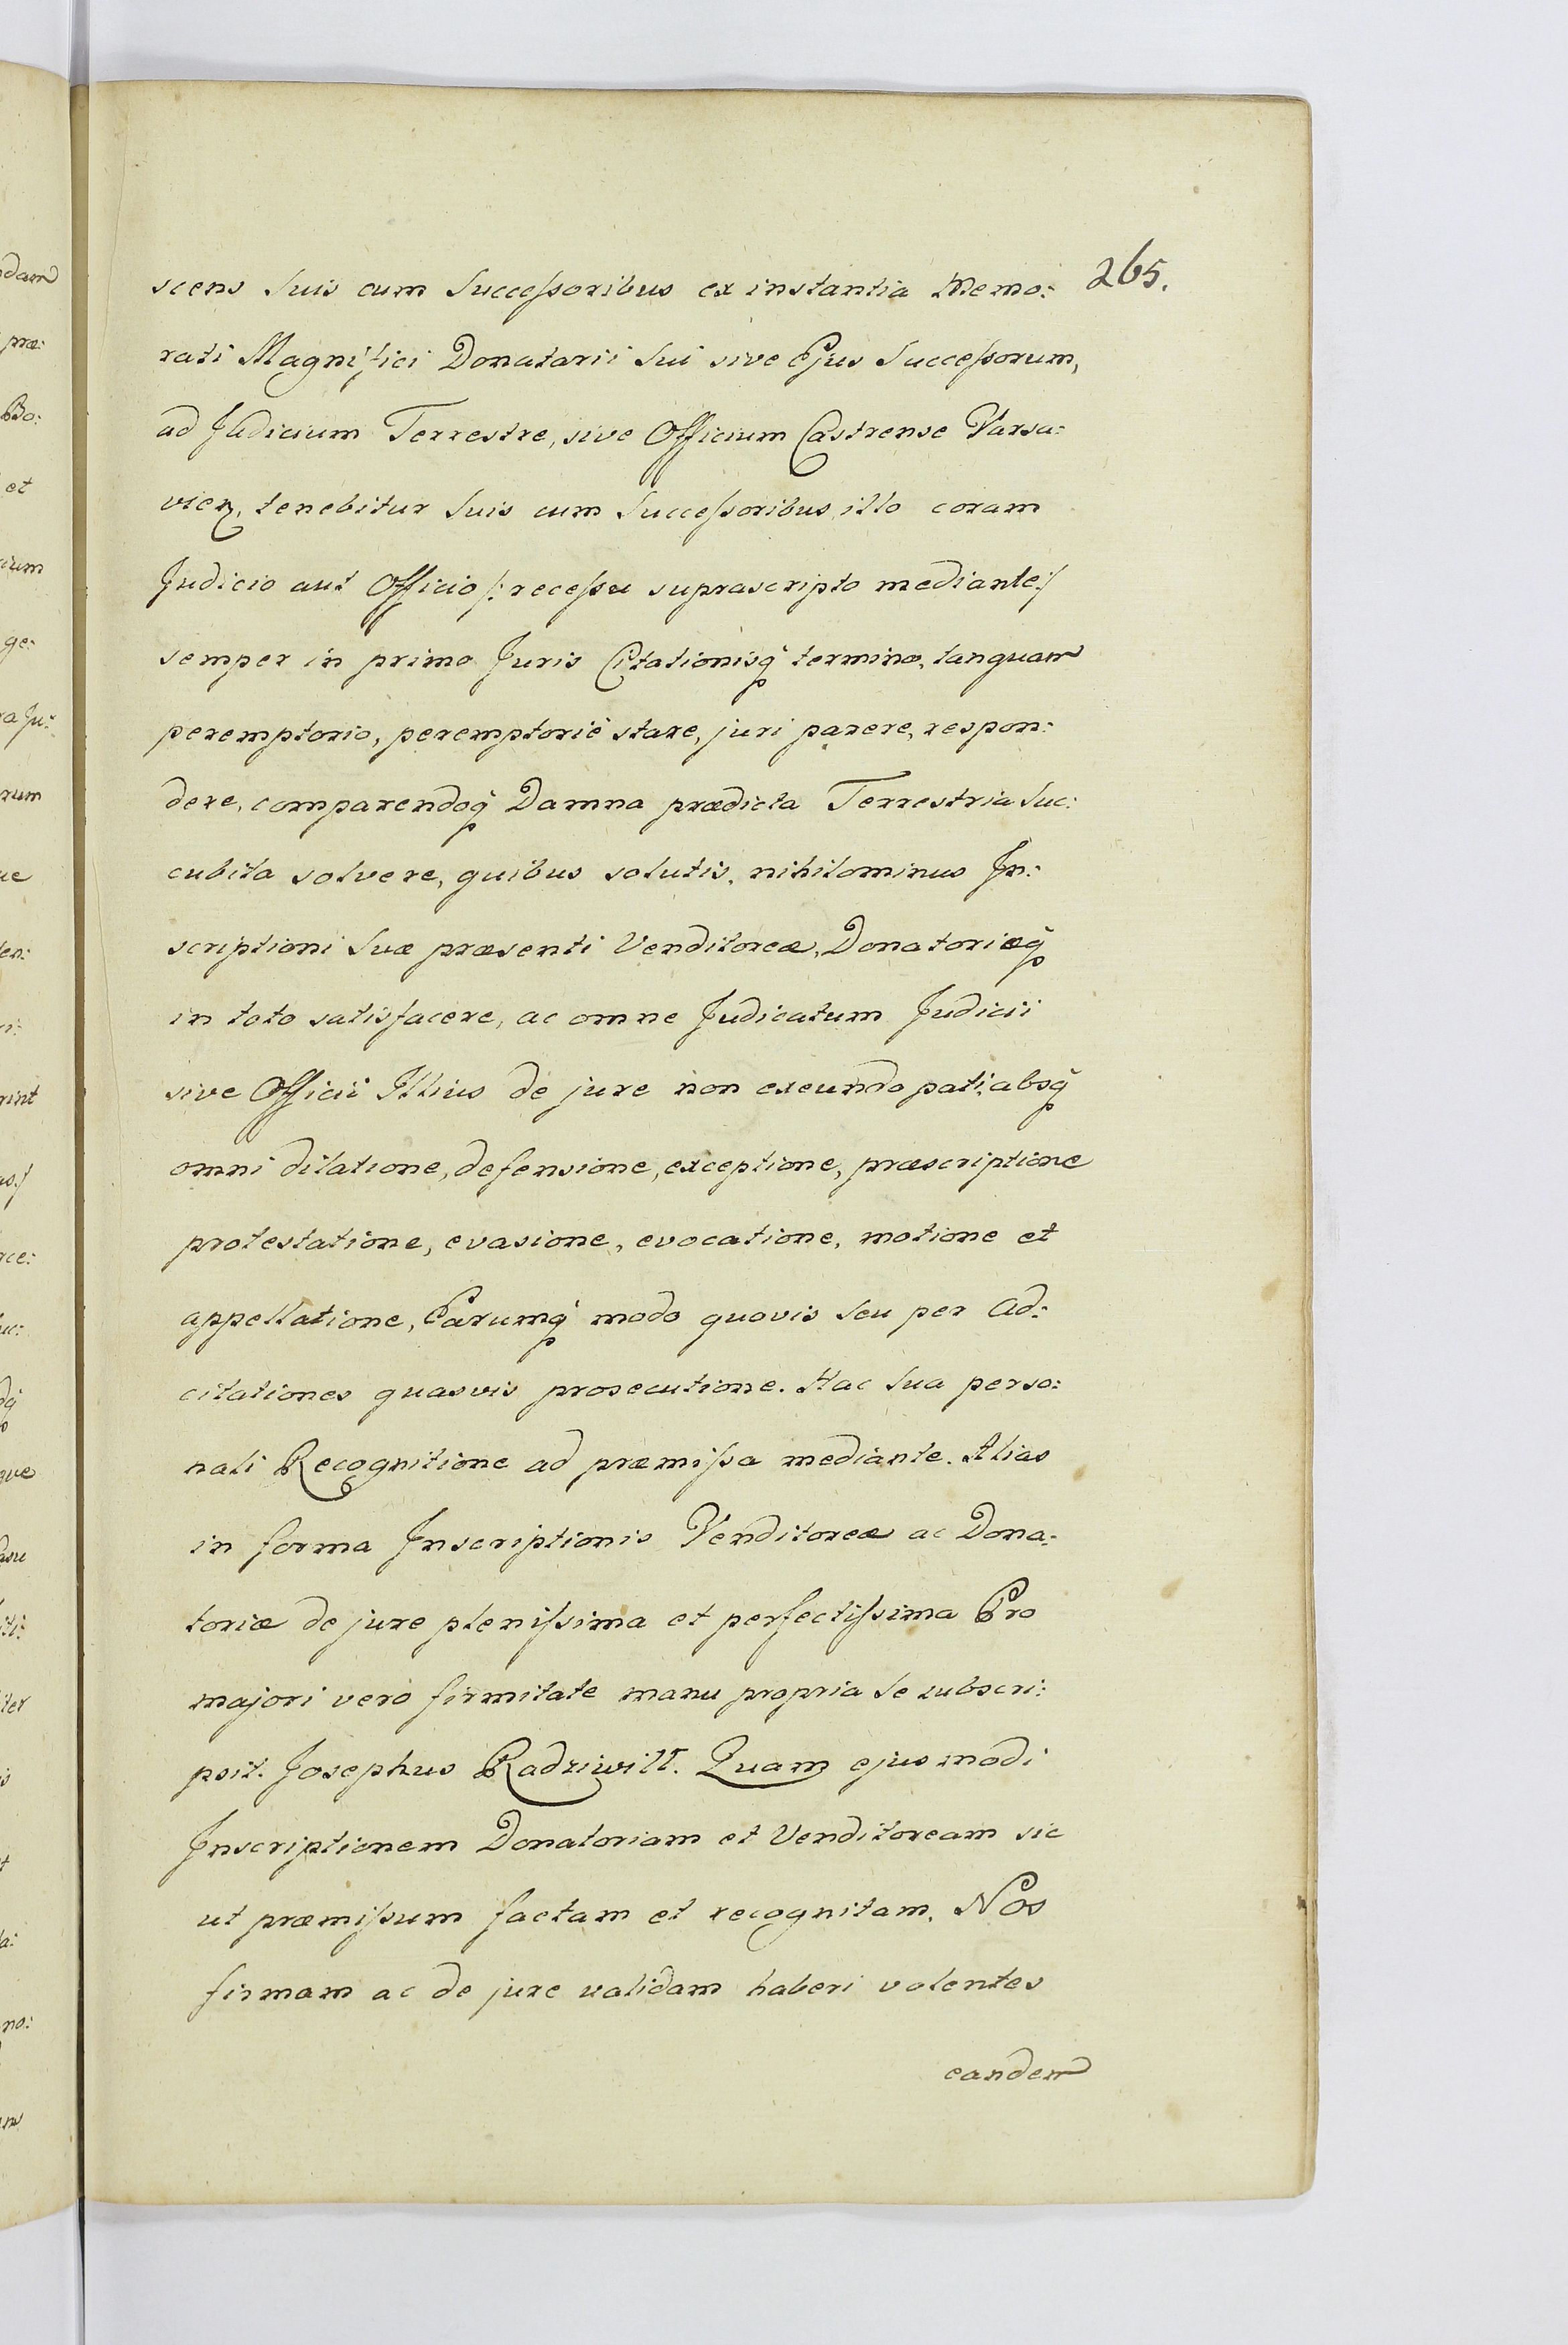 265.
scens Suis cum Succeſsoribus ex instantia Memo:
rati Magnifici Donatarii Sui sive Ejus Succeſsorum,
ad Judicium Terrestre, sive Officium Castrense Varsa:
vien, tenebitur Suis cum Succeſsoribus illo coram
Judicio aut Officio /: receſsu suprascripto mediante:/
semper in primo Juris Citationisq̃ termino, tanquam
peremptorio, peremptorie stare, juri parere, respon:
dere, comparendoq̃ Damna prædicta Terrestria Suc:
cubita solvere, quibus solutis, nihilominus In:
scriptioni Suæ præsenti Venditoreæ, Donatoriæq̃
in toto satisfacere, ac omne Judicatum Judicii
sive Officii Illius de jure non exeundo pati, absq̃
omni dilatione, defensione, exceptione, præscriptione
protestatione, evasione, evocatione, motione et
appellatione, Earumq̃ modo quovis seu per Ad:
citationes quasvis prosecutione. Hac Sua perso:
nali Recognitione ad præmiſsa mediante. Alias
in forma Inscriptionis Venditoreæ ac Dona:
toriæ de jure pleniſsima et perfectiſsima Pro
majori vero firmitate manu propria Se subscri:
psit. Josephus Radziwiłł. Quam ejusmodi
Inscriptionem Donatoriam et Venditoream sic
ut præmiſsum factam et recognitam. Nos
firmam ac de jure validam haberi volentes
eandem